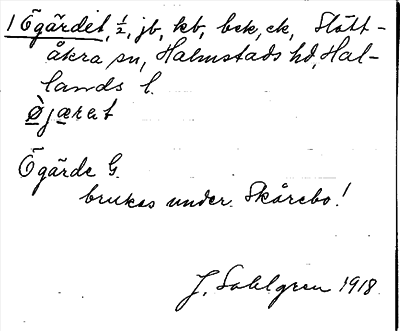 1 Ögärdet, ½, jb, kb, bek, ek, Slätt-
åkra sn, Halmstads hd, Hal-
lands l.
Ø̀jæret
Ögärde G.
brukas under Skårebo!
J. Sahlgren 1918